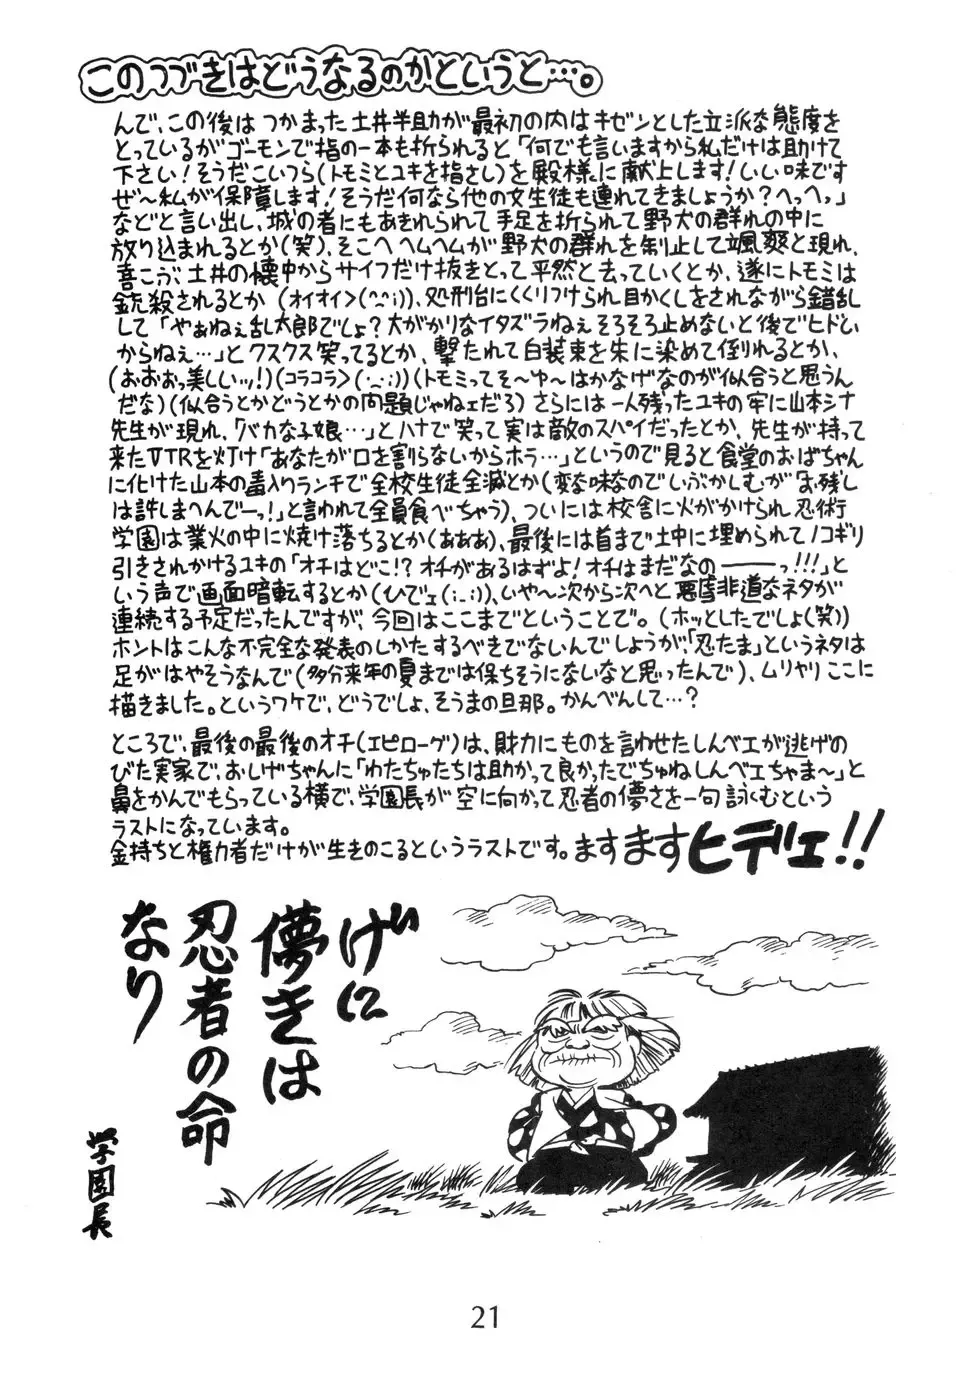 このつづきはどうなるのかというと…。
んで、この後は つかまった土井半助が最初の内はキゼンとした立派な態度を
とっているがゴーモンで指の一本も折られると「何でも言いますから私だけは助けて
下さい!そうだこいつら(トモミとユキを指さし)を殿様に献上します!いい味です
ぜ〜私が保障します!そうだ何なら他の女生徒も連れてきましょうか?へっへっ」
などと言い出し、城の者にもあきれられて手足を折られて野犬の群れの中に
放り込まれるとか(笑)、そこへヘムヘムが野犬の群れを制止して颯爽と現れ、
喜こぶ土井の懐中からサイフだけ抜きとって平然と去っていくとか、遂にトモミは
銃殺されるとか(オイオイ>(^^;))、処刑台にくくりつけられ目かくしをされながら錯乱
して「やぁねぇ乱太郎でしょ?大がかりなイタズラねぇそろそろ止めないと後でヒドい
からねぇ…」とクスクス笑ってるとか、撃たれて白装束を朱に染めて倒れるとか、
(おおおっ美しいッ!)(コラコラ>(^^;))(トモミってそ〜ゆ〜はかなげなのが似合うと思うん
だな)(似合うとかどうとかの問題じゃねェだろ)さらには一人残ったユキの牢に山本シナ
先生が現れ、「バカな子娘…」とハナで笑って実は敵のスパイだったとか、先生が持って
来たVTRを灯け「あなたが口を割らないからホラ…」というので見ると食堂のおばちゃん
に化けた山本の毒入りランチで全校生徒全滅とか(変な味なのでいぶかしむが「お残し
は許しまへんでーっ!」と言われて全員食べちゃう)、ついには校舎に火がかけられ忍術
学園は業火の中に焼け落ちるとか(あああ)、最後には首まで土中に埋められてノコギリ
引きされかけるユキの「オチはどこ!?オチがあるはずよ!オチはまだなの―――っ!!!」と
いう声で画面暗転するとか(ひでェ(;_;))、いや〜次から次へと悪虐非道なネタが
連続する予定だったんですが、今回はここまでということで。(ホッとしたでしょ(笑))
ホントはこんな不完全な発表のしかたするべきでないんでしょうが、「忍たま」というネタは
足がはやそうなんで(多分来年の夏までは保ちそうにないなと思ったんで)、ムリヤリここに
描きました。というワケで、どうでしょ、そうまの旦那。かんべんして…?
ところで、最後の最後のオチ(エピローグ)は、財力にものを言わせたしんベエが逃げの
びた実家で、おしげちゃんに「わたちゅたちは助かって良かったでちゅねしんベエちゃま〜」と
鼻をかんでもらっている横で、学園長が空に向かって忍者の儚さを一句詠むという
ラストになっています。
金持ちと権力者だけが生きのこるというラストです。ますますヒデェ!!
げに
儚きは
忍者の命
なり
学園長
21